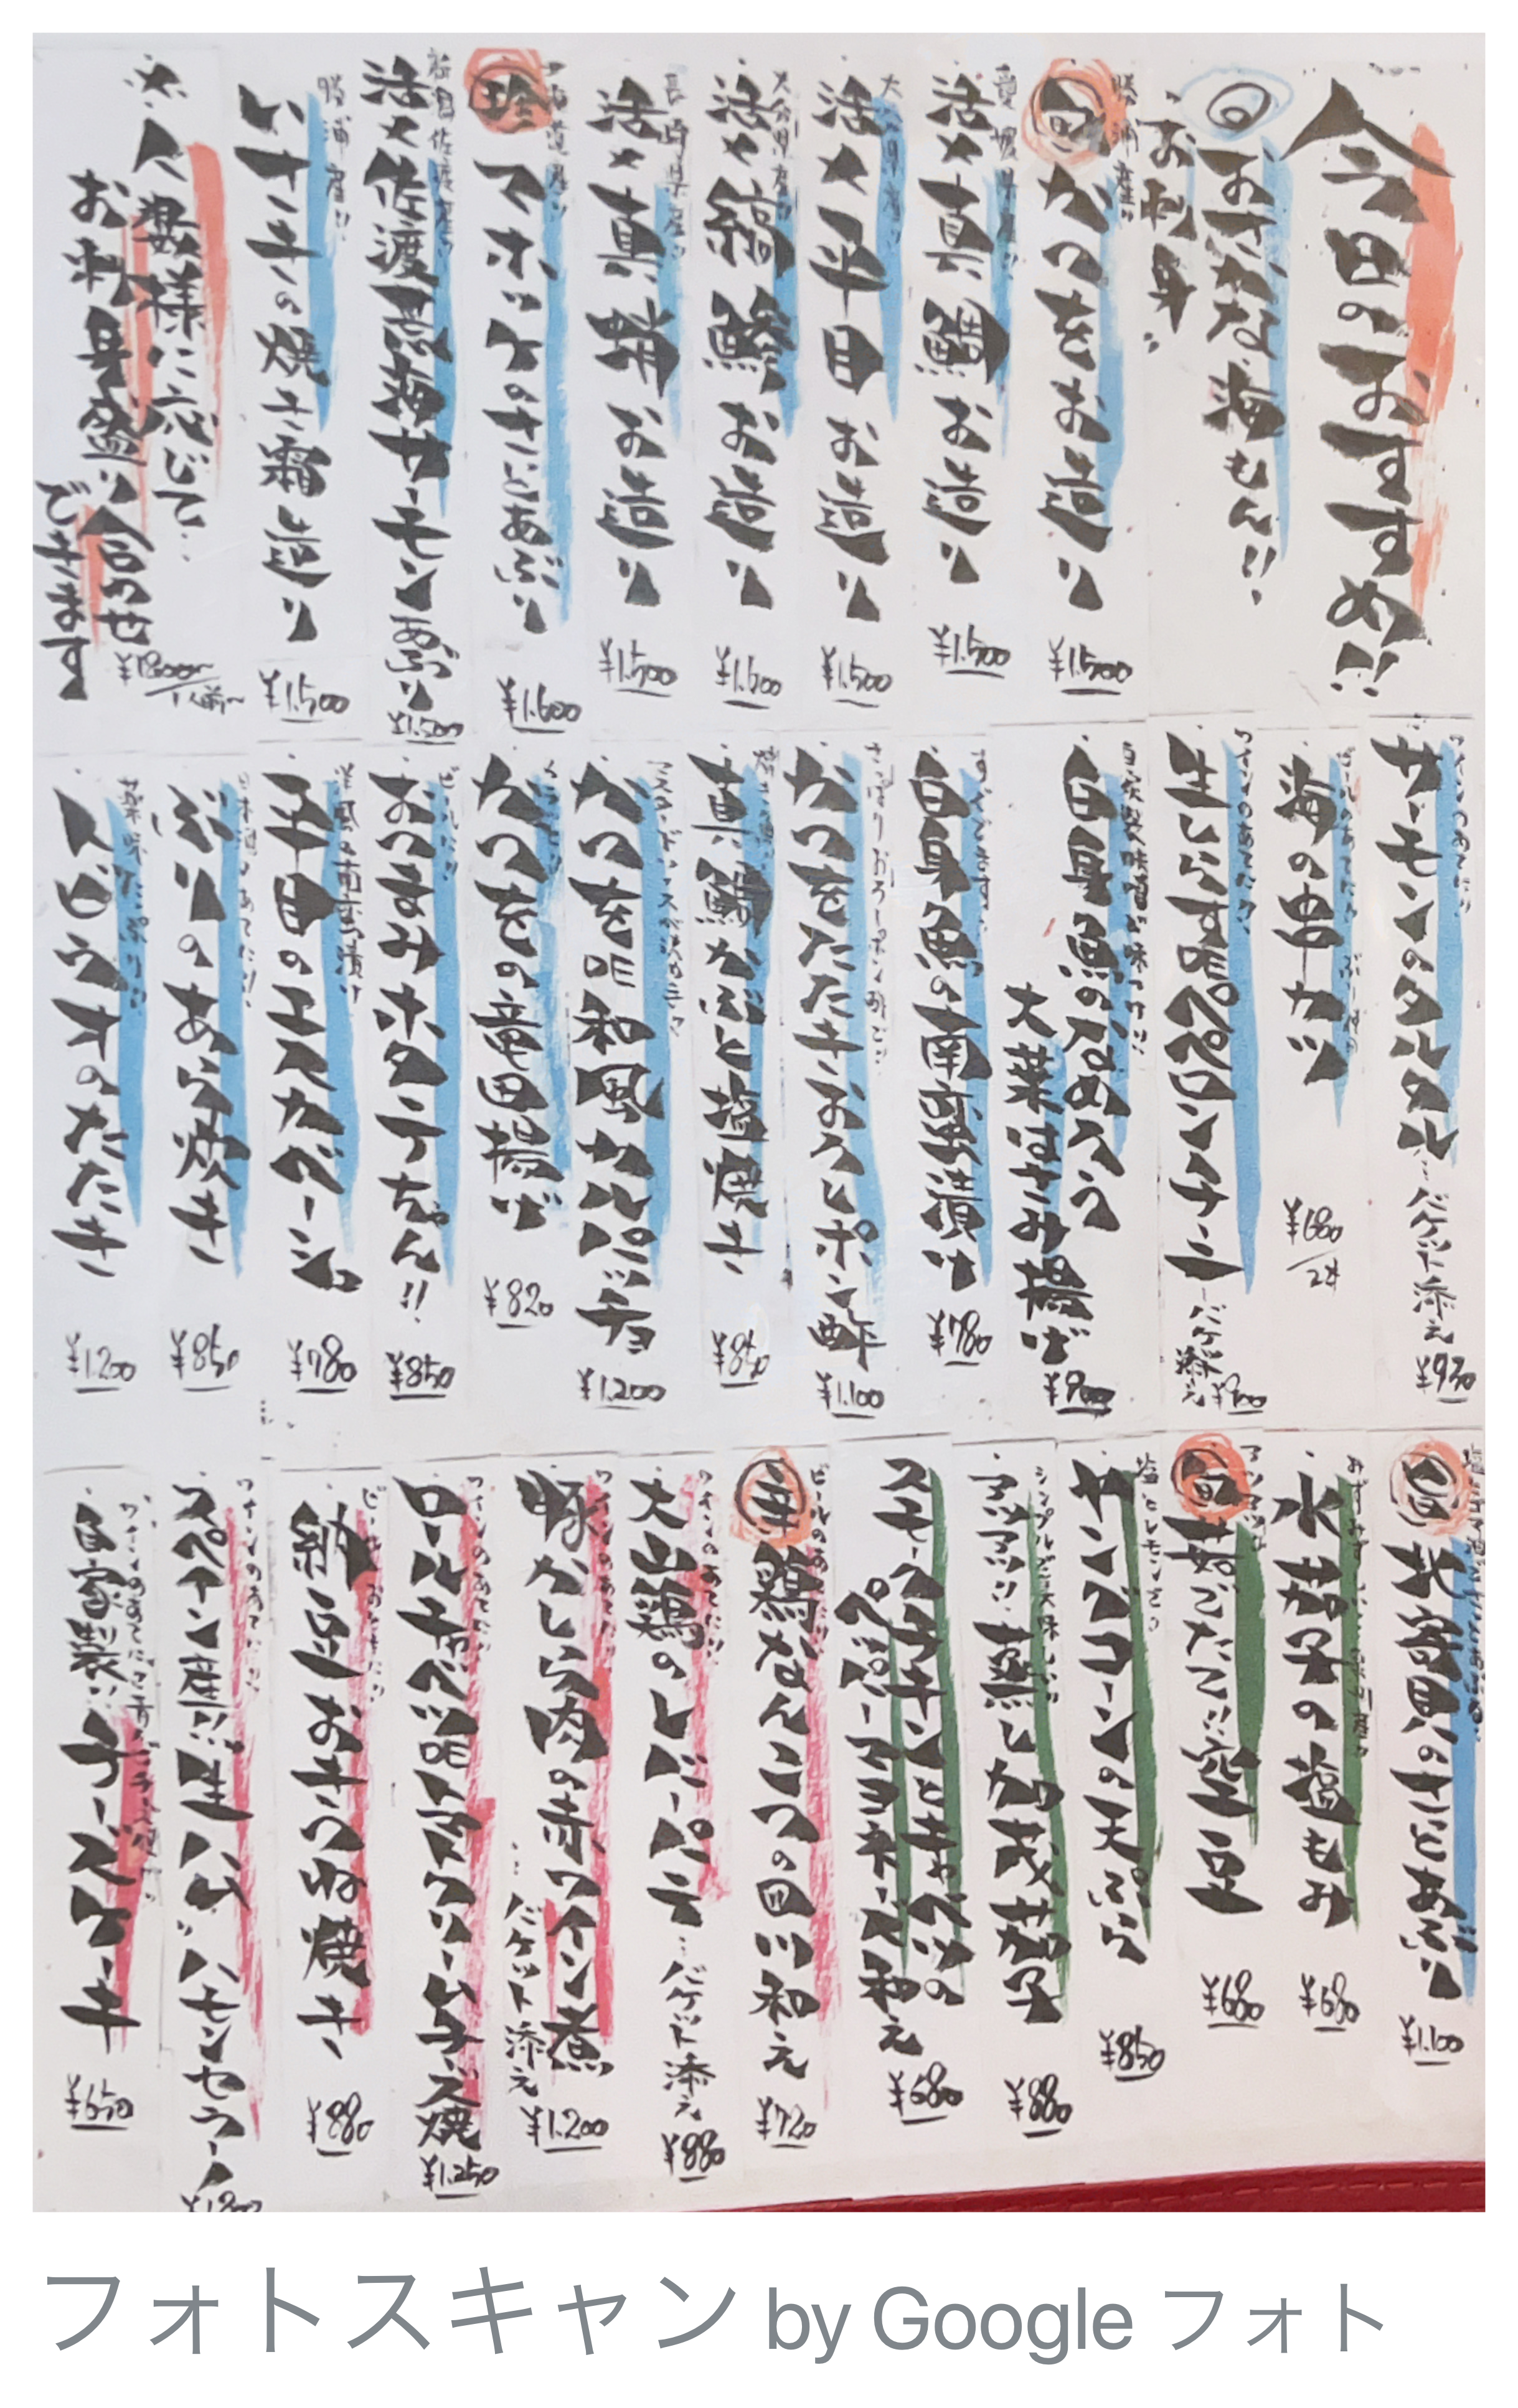 今日のおすすめ!!
おさかな海もん!!
お刺身
勝浦産!!
旬
かつをお造り
¥1.500
愛媛県産!!
活〆真鯛お造り
¥1.500
大分県産!!
活〆平目お造り
¥1.500
大分県産!!
活〆縞鯵お造り
長崎県産!!
活〆真蛸お造り
¥1.500
珍
マホッケのさっとあぶり
¥1.600
新潟佐渡産!!
活〆佐渡荒海サーモン炙ぶり
¥1.500
勝浦産!!
いさきの焼き霜造り
¥1.500
人数様に応じて…
お刺身盛り合わせ
できます
ワインのあてに!!
サーモンのタルタル…バゲット添え
¥930
海の串カツ
¥680/2本
ワインのあてに!!
生しらすDEペペロンチーニ
バゲ添え
自家製味噌が味つけ!!
白身魚のなめろう
大葉はさみ揚げ
¥900
すぐできます…
白身魚の南蛮漬け
¥780
さっぱりおろしポン酢で!!
かつをたたきおろしポン酢
¥1.100
真鯛かぶと塩焼き
¥850
かつをDE和風カルパッチョ
¥1.200
かつをの竜田揚げ
¥820
おつまみホタテちゃん!!
¥850
洋風の南蛮漬け
平目のエスカベーシュ
¥780
日本酒のあてに!!
ぶりのあら炊き
¥850
薬味たっぷり!!
トビウオのたたき
¥1200
北寄貝のさっとあぶり
¥1.100
水茄子の塩もみ
¥680
旬
茹でたて!!空豆
¥680
塩とレモンで
ヤングコーンの天ぷら
¥850
蒸し加茂茄子
¥880
スモークチキンとキャベツの
ペッパーマヨネーズ和え
¥680
辛
ビールのあてに!!
鶏なんこつの四川和え
¥720
ワインのあてに!!
大山鶏のレバーパテ…バゲット添え
¥880
ワインのあてに!!
豚かしら肉の赤ワイン煮
…バゲット添え
¥1.200
ワインのあてに!!
ロールキャベツDEトマトクリームチーズ焼
¥1.250
納豆おきつね焼き
¥880
ワインのあてに!!
スペイン産!!生ハム"ハモンセラーノ
自家製!!チーズケーキ
¥650
フォトスキャン by Google フォト